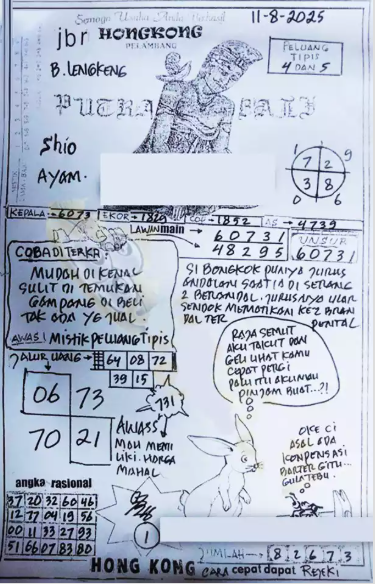 Semoga Usaha Anda Berhasil
11-8-2025
jbr HONGKONG
PELAMBANG
B. LENGKENG
PELUANG
TIPIS
4 DAN 5
PUTRA BALI
Shio
AYAM.
1 9
7 2
3 8
0 6
KEPALA → 6073 EKOR → 1829 COL → 1852 AS → 4739
LAWAN main
60731
48295
UNSUR
60731
COBA DITERKA:
MUDAH DI KENAL
SULIT DI TEMUKAN
GAMPANG DI BELI
TAK ADA YG JUAL.
AWAS! Mistik Peluang Tipis
SI BONGKOK PUNYA JURUS
ANDALAN SAAT IA DI SERANG
2 BERANDAL. JURUSNYA ULAR
SENDOK MEMATIKAN KE 2
JALUR UANG → 64 08 72
39 15
731
06 73
70 21
AWASS
MAU MEMI
LIKI. HARGA
MAHAL
RAJA SEMUT
AKU TAKUT DAN
GELI LIHAT KAMU
CEPAT PERGI
PALU ITU AKU MAU
PINJAM BUAT...?!
OKE CI
ASAL ADA
KONPENSASI
BARTER GITU...
GULA TEBU.
angka rasional
37 20 32 60 46
12 77 04 19 56
00 11 33 27 93
51 66 07 83 80
1
JUMLAH → 8 2 6 7 3
HONG KONG CARA cepat dapat REJEKI